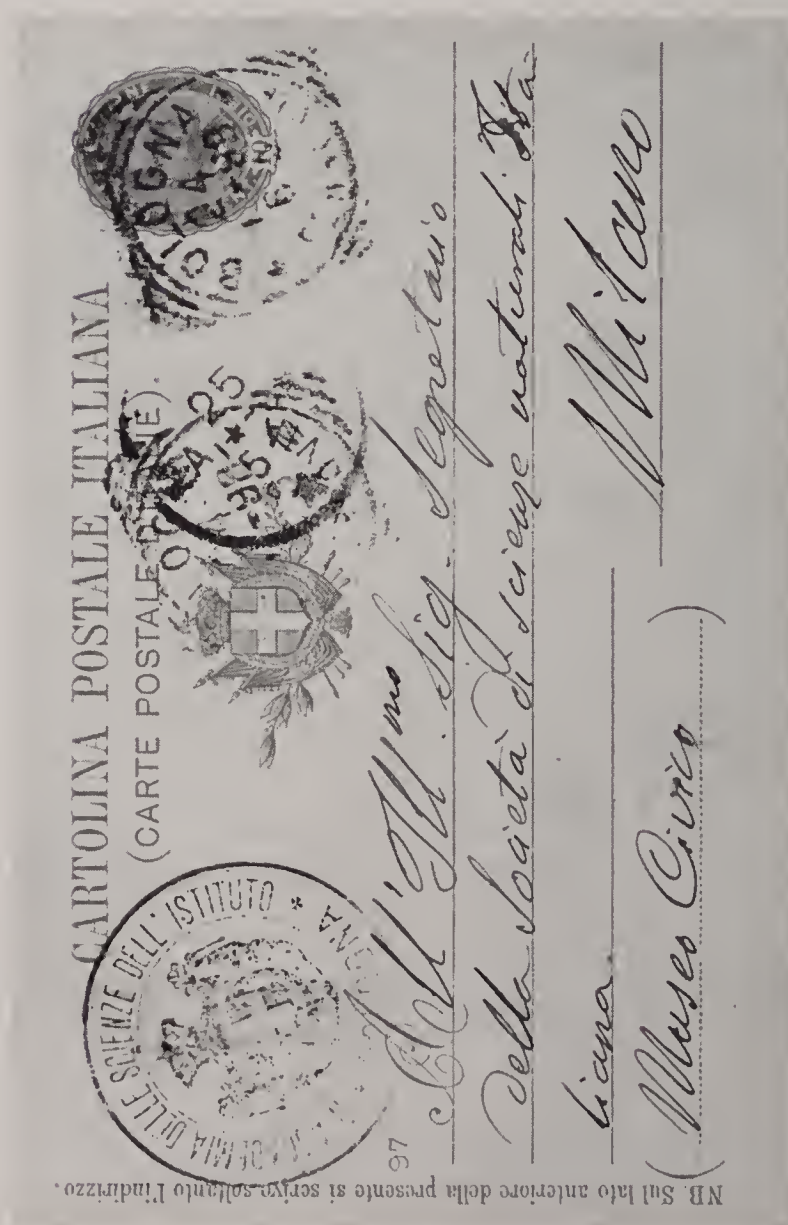 CARTOLINA POSTALE ITALIANA
(CARTE POSTALE
ACCADEMIA DELLE SCIENZE DELL' ISTITUTO * BOLOGNA
25
98
97
All' Ill.mo Sig. Segretario
della Società di scienze naturali Ita-
liana
Milano
(Museo Civico)
NB. Sul lato anteriore della presente si scrive soltanto l'indirizzo.